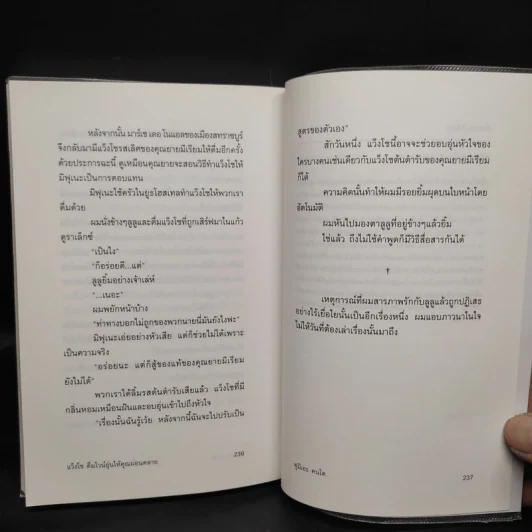 หลังจากนั้น มาร์เช เดอ โนแอลของเมืองสทราซบูร์
จึงกลับมามีแว็งโชรสเลิศของคุณยายมีเรียมให้ดื่มอีกครั้ง
ด้วยประการฉะนี้ ดูเหมือนคุณยายจะสอนวิธีทำแว็งโชให้
มิฟุเนะเป็นการตอบแทน
มิฟุเนะใช้ครัวในยูธโฮสเทลทำแว็งโชให้พวกเรา
ดื่มด้วย
ผมนั่งข้างๆลูลูและดื่มแว็งโชที่ถูกเสิร์ฟมาในแก้ว
ดูราเล็กซ์
“เป็นไง”
“ก็อร่อยดี...แต่”
ลูลูยิ้มอย่างเจ้าเล่ห์
“...เนอะ”
ผมพยักหน้าบ้าง
“ท่าทางบอกไม่ถูกของพวกนายนี่มันยังไงฟะ”
มิฟุเนะเอ่ยอย่างหัวเสีย แต่ก็ช่วยไม่ได้เพราะ
เป็นความจริง
“อร่อยนะ แต่ก็สู้ของแท้ของคุณยายมีเรียม
ยังไม่ได้”
พวกเราได้ลิ้มรสต้นตำรับเสียแล้ว แว็งโชที่มี
กลิ่นหอมเหมือนฝันและอบอุ่นเข้าไปถึงหัวใจ
“เรื่องนั้นฉันรู้เว้ย หลังจากนี้ฉันจะไปปรับเป็น
236
แว็งโช ดื่มไวน์อุ่นให้คุณผ่อนคลาย
สูตรของตัวเอง”
สักวันหนึ่ง แว็งโชนี้อาจจะช่วยอบอุ่นหัวใจของ
ใครบางคนเช่นเดียวกับแว็งโชต้นตำรับของคุณยายมีเรียม
ก็ได้
ความคิดนั้นทำให้ผมมีรอยยิ้มผุดบนใบหน้าโดย
อัตโนมัติ
ผมหันไปมองตาลูลูที่อยู่ข้างๆแล้วยิ้ม
ใช่แล้ว ถึงไม่ใช้คำพูดก็มีวิธีสื่อสารกันได้
†
เหตุการณ์ที่ผมสารภาพรักกับลูลูแล้วถูกปฏิเสธ
อย่างไร้เยื่อใยนั้นเป็นอีกเรื่องหนึ่ง ผมแอบภาวนาในใจ
ไม่ให้วันที่ต้องเล่าเรื่องนั้นมาถึง
ฟูมิเอะ คนโด
237